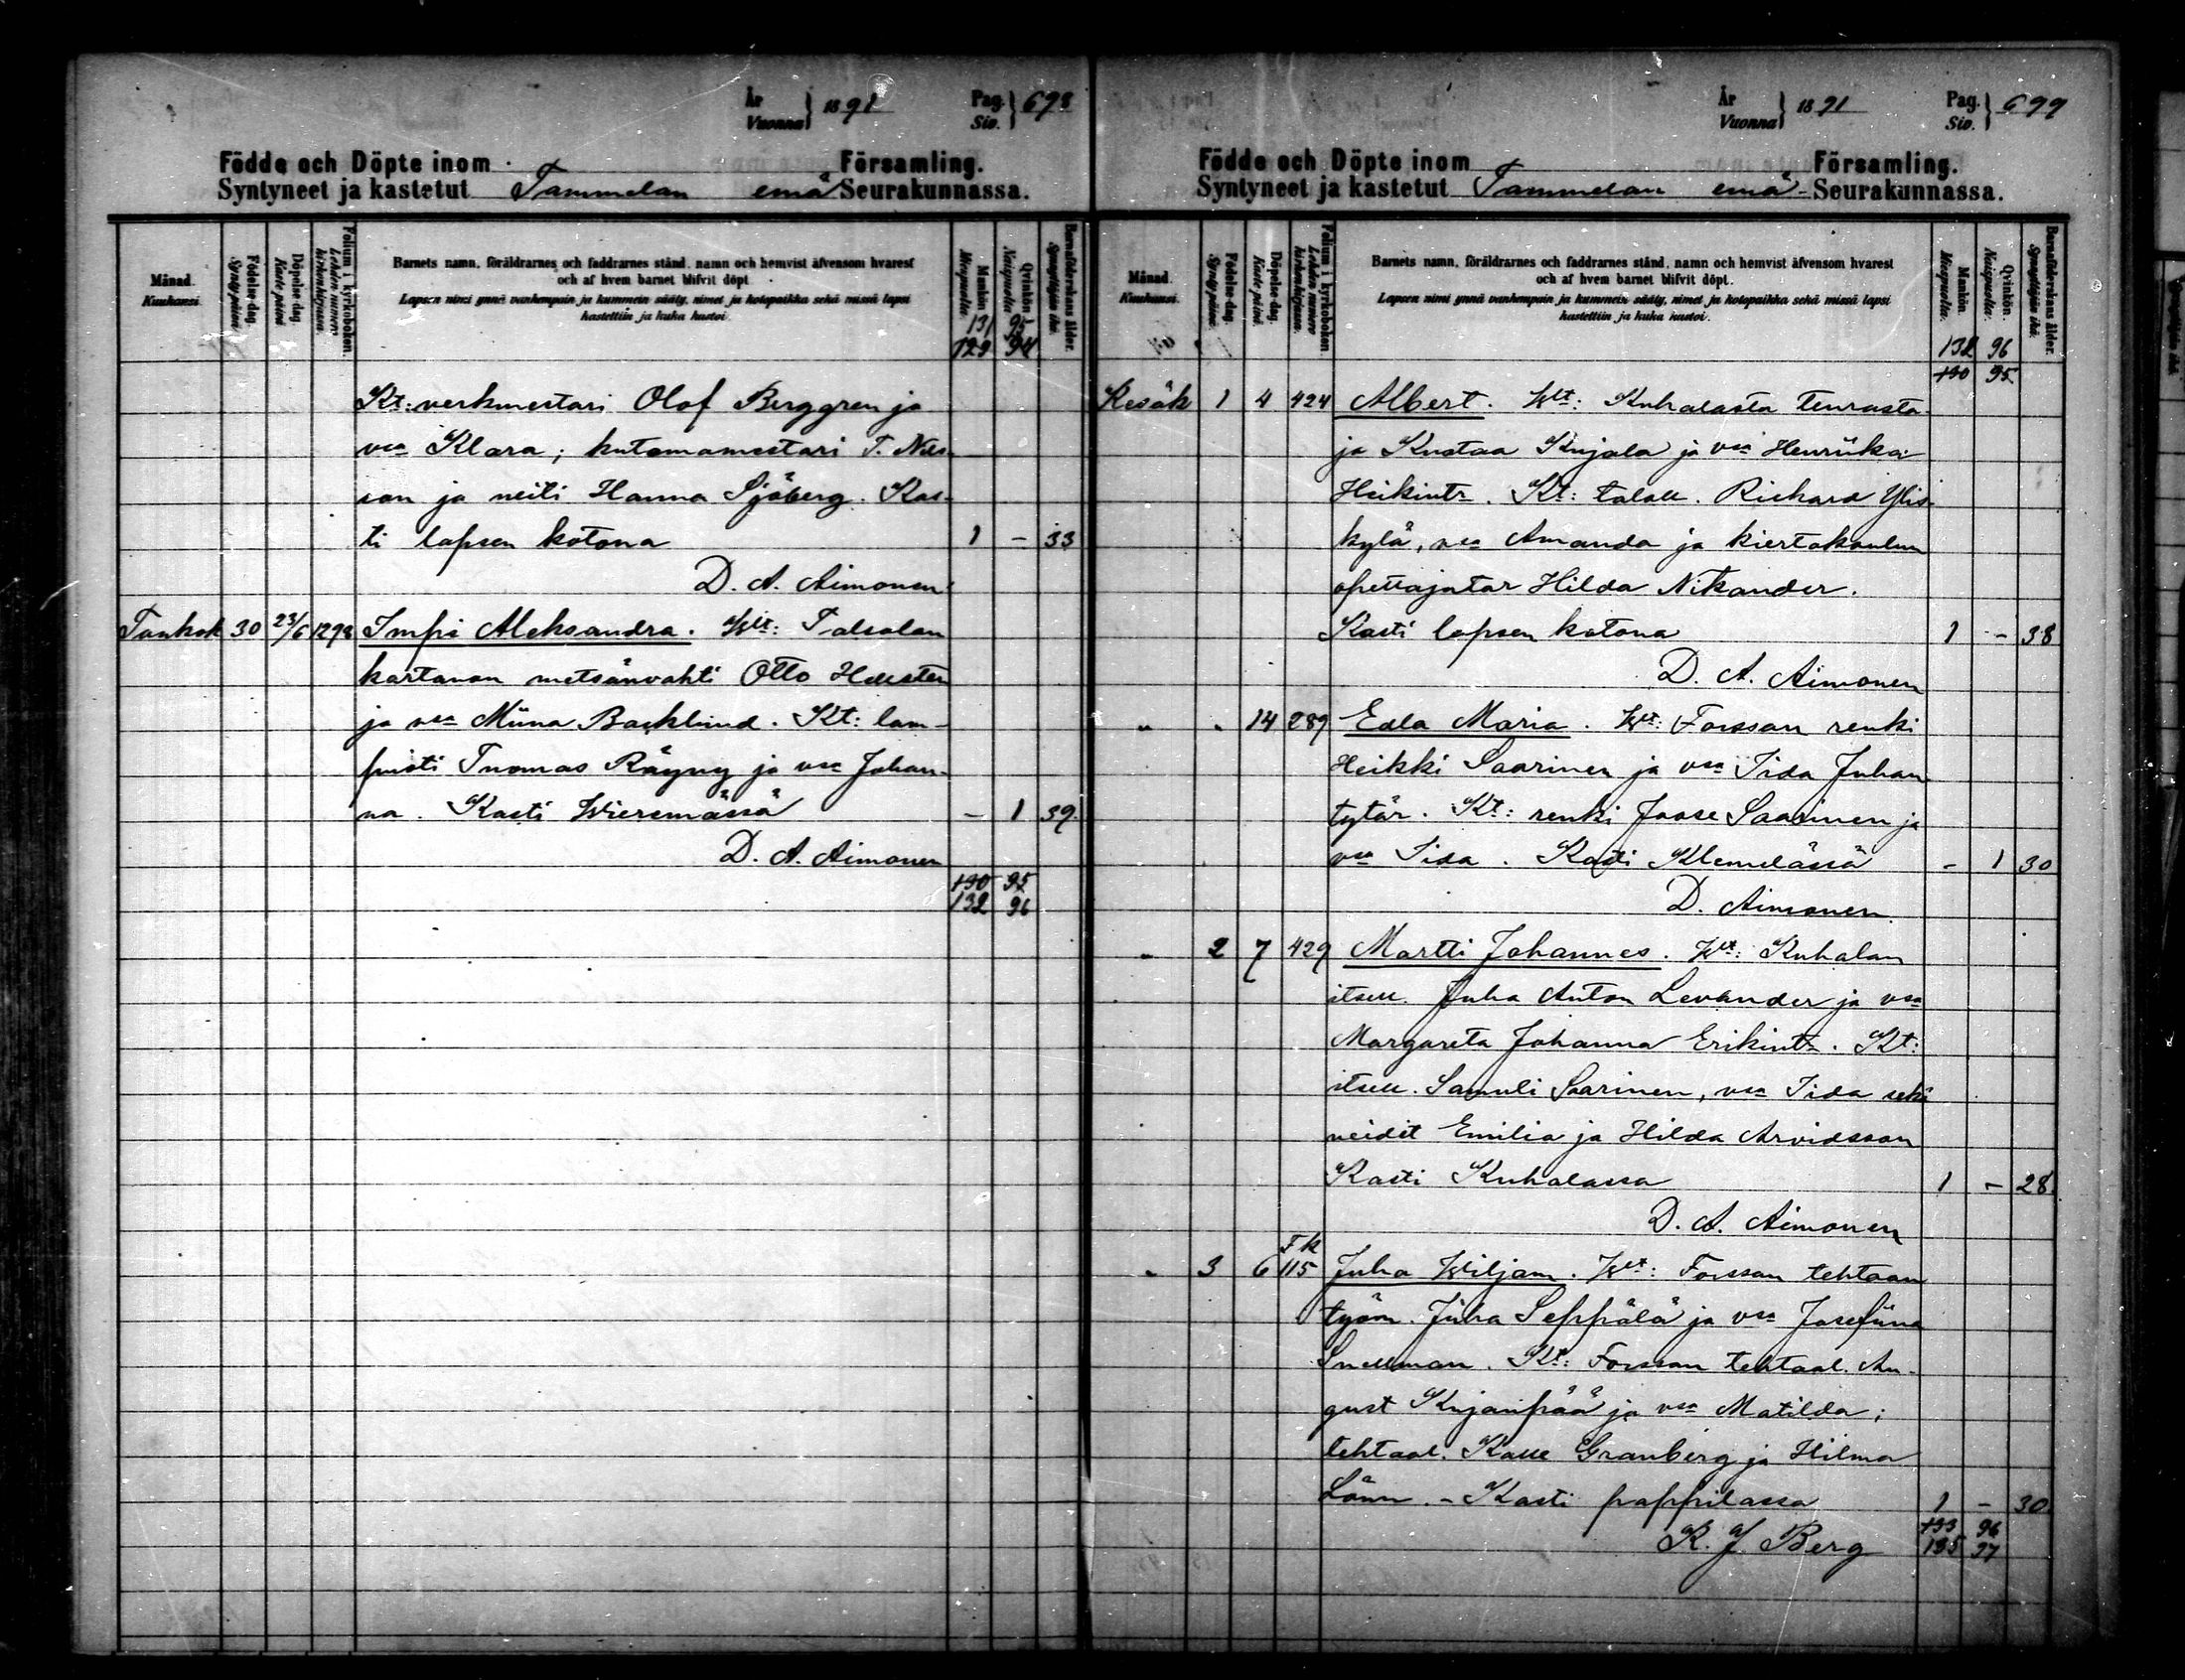 År
Vuonna } 1891 Pag.
Siv. } 698
Födde och Döpte inom Församling.
Syntyneet ja kastetut Tammelan emä Seurakunnassa.
Månad. Kuukausi.
Födelse-dag. Syntypäivä.
Döpelse-dag. Kastepäivä.
Folium i kyrkoboken. Lehden numero kirkonkirjassa.
Barnets namn, föräldrarnes och faddrarnes stånd, namn och hemvist äfvensom hvarest
och af hvem barnet blifvit döpt.
Lapsen nimi ynnä vanhempain ja kummein sääty, nimet ja kotopaikka sekä missä lapsi
kastettiin ja kuka kastoi.
Mankön. Miespuolia.
Qvinkön. Naispuolia.
Barnaföderskans ålder. Synnyttäjän ikä.
131 95
129 94
Kt: verkmestari Olof Berggren ja
vsa Klara; kutomamestari T. Nils-
son ja neiti Hanna Sjöberg. Kas-
ti lapsen kotona 1 - 33
D. A. Aimonen
Toukok 30 23/6 1298 Impi Aleksandra. Wlt:
kartanon metsänvahti Otto Hellsten
ja vsa Miina Backlund. Kt: lam-
puoti Tuomas Räyny ja vsa Johan-
na. Kasti Wieremässä - 1 39
D. A. Aimonen
130 95
132 96
År
Vuonna } 1891 Pag.
Siv. } 699
Födde och Döpte inom Församling.
Syntyneet ja kastetut Tammelan emä- Seurakunnassa.
Månad. Kuukausi.
Födelse-dag. Syntypäivä.
Döpelse-dag. Kastepäivä.
Folium i kyrkoboken. Lehden numero kirkonkirjassa.
Barnets namn, föräldrarnes och faddrarnes stånd, namn och hemvist äfvensom hvarest
och af hvem barnet blifvit döpt.
Lapsen nimi ynnä vanhempain ja kummein sääty, nimet ja kotopaikka sekä missä lapsi
kastettiin ja kuka kastoi.
Mankön. Miespuolia.
Qvinkön. Naispuolia.
Barnaföderskans ålder. Synnyttäjän ikä.
132 96
130 95
Kesäk 1 4 424 Albert. Wlt: Kuhalasta teurasta-
ja Kustaa Kujala ja vsa Henriika
Heikintr. Kt: taloll. Richard Ylis-
kylä, vsa Amanda ja kiertokoulun
opettajatar Hilda Nikander.
Kasti lapsen kotona 1 - 38
D. A. Aimonen
" " 14 289 Edla Maria. Wlt: Forssan renki
Heikki Saarinen ja vsa Iida Juhan
tytär. Kt: renki Joose Saarinen ja
vsa Iida. Kasti Klemelässä - 1 30
D. Aimonen.
" 2 7 429 Martti Johannes. Wlt: Kuhalan
itsell. Juha Anton Levander ja vsa
Margareta Johanna Erikintr. Kt:
itsell. Samuli Saarinen, vsa Iida sekä
neidit Emilia ja Hilda Arvidsson
Kasti Kuhalassa 1 - 28
D. A. Aimonen
" 3 6 Fk 115 Juha Wiljam. Wlt: Forssan tehtaan
työm. Juha Seppälä ja vsa Josefiina
Snellman. Kt: Forssan tehtaal. Au-
gust Kujanpää ja vsa Matilda;
tehtaal. Kalle Granberg ja Hilma
Lönn. - Kasti pappilassa 1 - 30
133 96
K. J. Berg 135 97